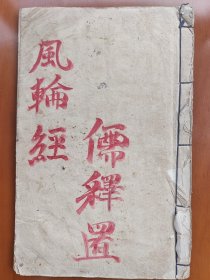 儒釋置
風輪經